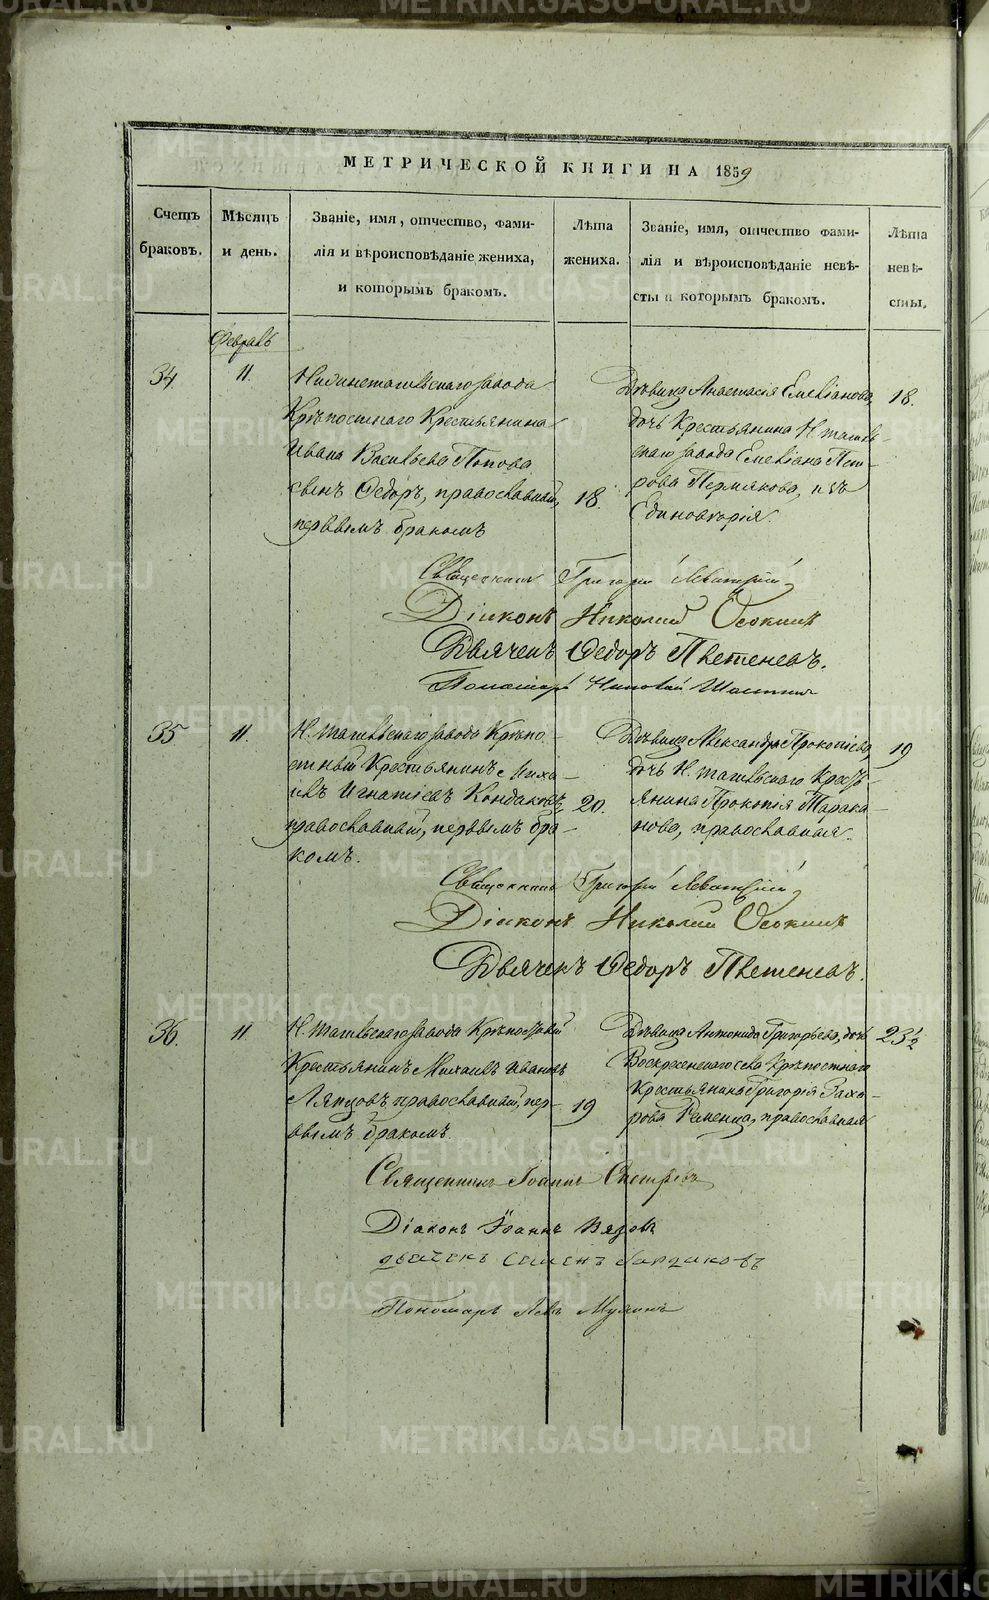 МЕТРИЧЕСКОЙ КНИГИ НА 1859
Счетъ браковъ.
Мѣсяцъ и день.
Званіе, имя, отчество, фами-
лія и вѣроисповѣданіе жениха,
и которымъ бракомъ.
Лѣта жениха.
Званіе, имя, отчество фами-
лія и вѣроисповѣданіе невѣ-
сты и которымъ бракомъ.
Лѣта невѣ-
сты.
Февраль
34
11.
Нижнетагильскаго завода
Крѣпостнаго Крестьянина
Ивана Васильева Попова
сынъ Ѳедоръ, православный,
первымъ бракомъ
18.
Дѣвица Анастасія Емеліанова,
дочь Крестьянина Н. тагиль-
скаго завода Емеліана Пет-
рова Пермякова, изъ
Единовѣрія.
18.
Священникъ Григорій Левитскій
Діаконъ Николай Осокинъ
Дьячекъ Ѳедоръ
Пономарь Николай
35
11.
Н. тагильскаго завода Крѣпо-
стный Крестьянинъ Миха-
илъ Игнатіевъ Кондаковъ,
православный, первымъ бра-
комъ.
20.
Дѣвица Александра Прокопіева,
дочь Н. тагильскаго Кресть-
янина Прокопія Тарака-
нова, православная.
19
Священникъ Григорій Левитскій
Діаконъ Николай Осокинъ
Дьячекъ Ѳедоръ
36.
11
Н. тагильскаго завода Крѣпостный
Крестьянинъ Михаилъ Ивановъ
Ляпцовъ православный, пер-
вымъ бракомъ.
19
Дѣвица Антонида Григорьева, дочь
Воскресенскаго села Крѣпостнаго
Крестьянина Григорія Захо-
рова православная
23 1/2
Священникъ Іоаннъ
Діаконъ Іоаннъ
дьячекъ Семенъ
Пономарь Левъ
METRIKI.GASO-URAL.RU